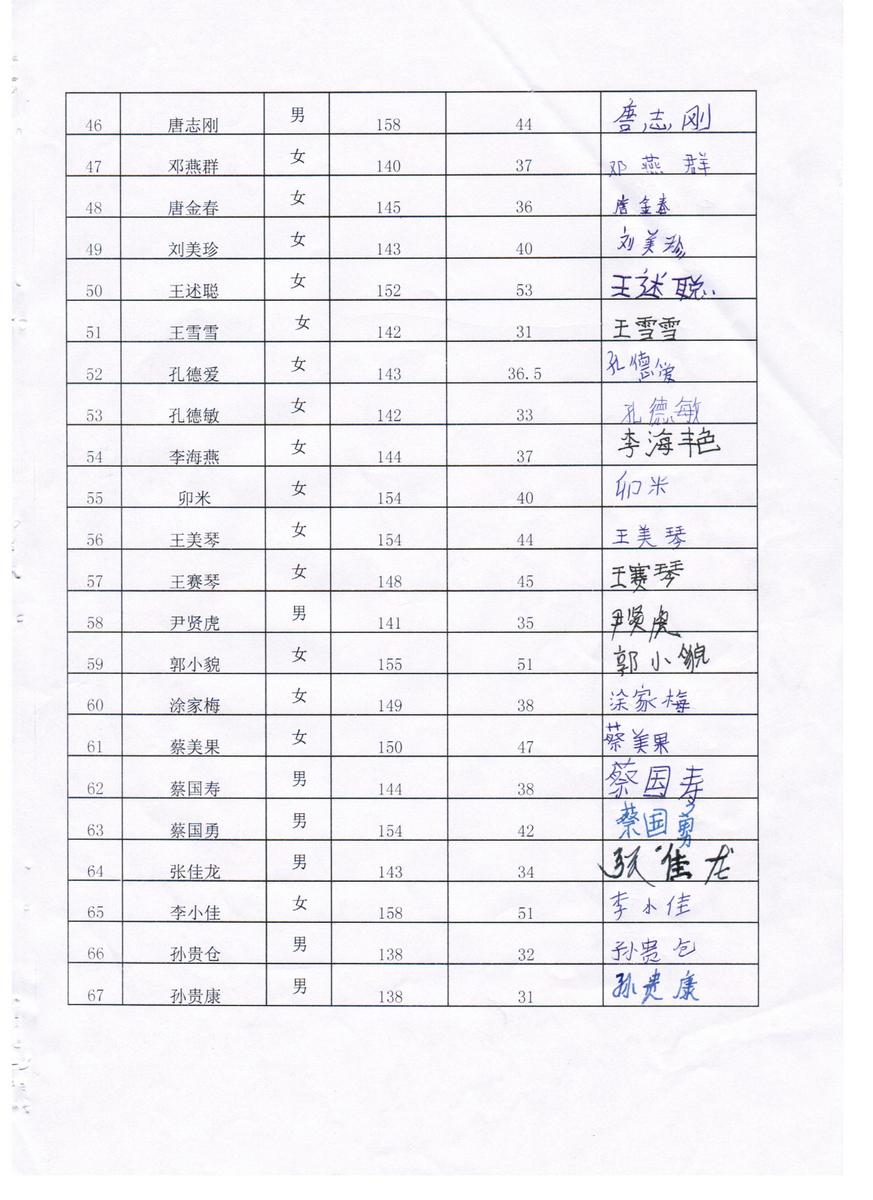 46 唐志刚 男 158 44 唐志刚
47 邓燕群 女 140 37 邓燕群
48 唐金春 女 145 36 唐金春
49 刘美珍 女 143 40 刘美珍
50 王述聪 女 152 53 王述聪
51 王雪雪 女 142 31 王雪雪
52 孔德爱 女 143 36.5 孔德爱
53 孔德敏 女 142 33 孔德敏
54 李海燕 女 144 37 李海艳
55 卯米 女 154 40 卯米
56 王美琴 女 154 44 王美琴
57 王赛琴 女 148 45 王赛琴
58 尹贤虎 男 141 35 尹贤虎
59 郭小貌 女 155 51 郭小貌
60 涂家梅 女 149 38 涂家梅
61 蔡美果 女 150 47 蔡美果
62 蔡国寿 男 144 38 蔡国寿
63 蔡国勇 男 154 42 蔡国勇
64 张佳龙 男 143 34 张佳龙
65 李小佳 女 158 51 李小佳
66 孙贵仓 男 138 32 孙贵仓
67 孙贵康 男 138 31 孙贵康